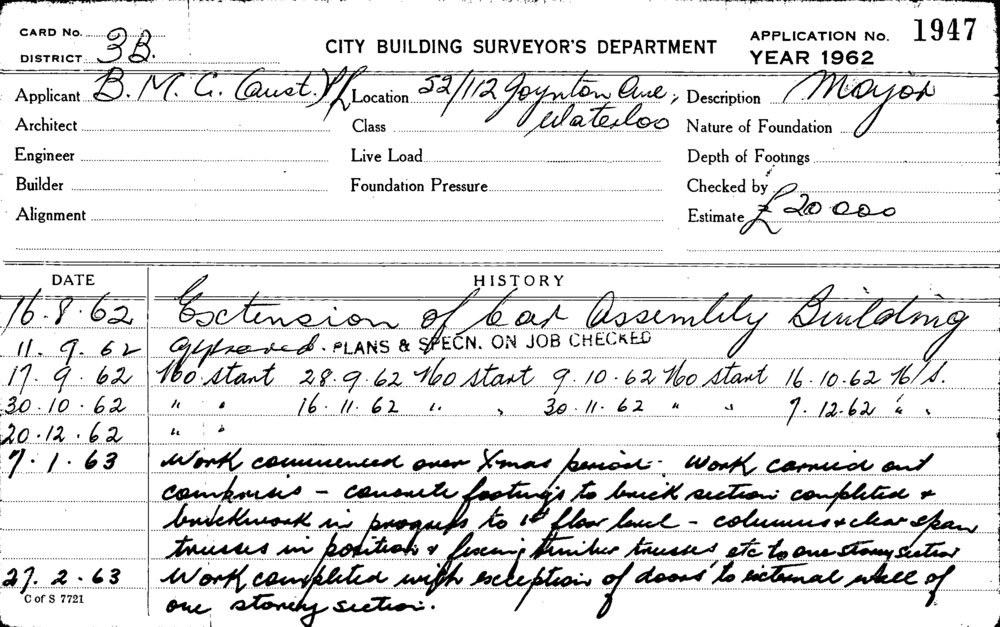 CARD No. 3B.
DISTRICT
CITY BUILDING SURVEYOR'S DEPARTMENT
APPLICATION No. 1947
YEAR 1962
Applicant B.M.C. (Aust.) P/L Location 52/112 Joynton Ave, Description Major
Architect Class Waterloo Nature of Foundation
Engineer Live Load Depth of Footings
Builder Foundation Pressure Checked by
Alignment Estimate £20 000
DATE HISTORY
16.8.62 Extension of Car Assembly Building
11.9.62 Approved. PLANS & SPECN. ON JOB CHECKED
17.9.62 No start 28.9.62 No start 9.10.62 No start 16.10.62 N/S.
30.10.62 " " 16.11.62 " " 30.11.62 " " 7.12.62 " "
20.12.62 " "
7.1.63 Work commenced over Xmas period. Work carried out
comprises - concrete footings to brick section completed &
brickwork in progress to 1st floor level - columns & clear span
trusses in position & fixing timber trusses etc to one storey section
27.2.63 Work completed with exception of doors to external wall of
C of S 7721 one storey section.